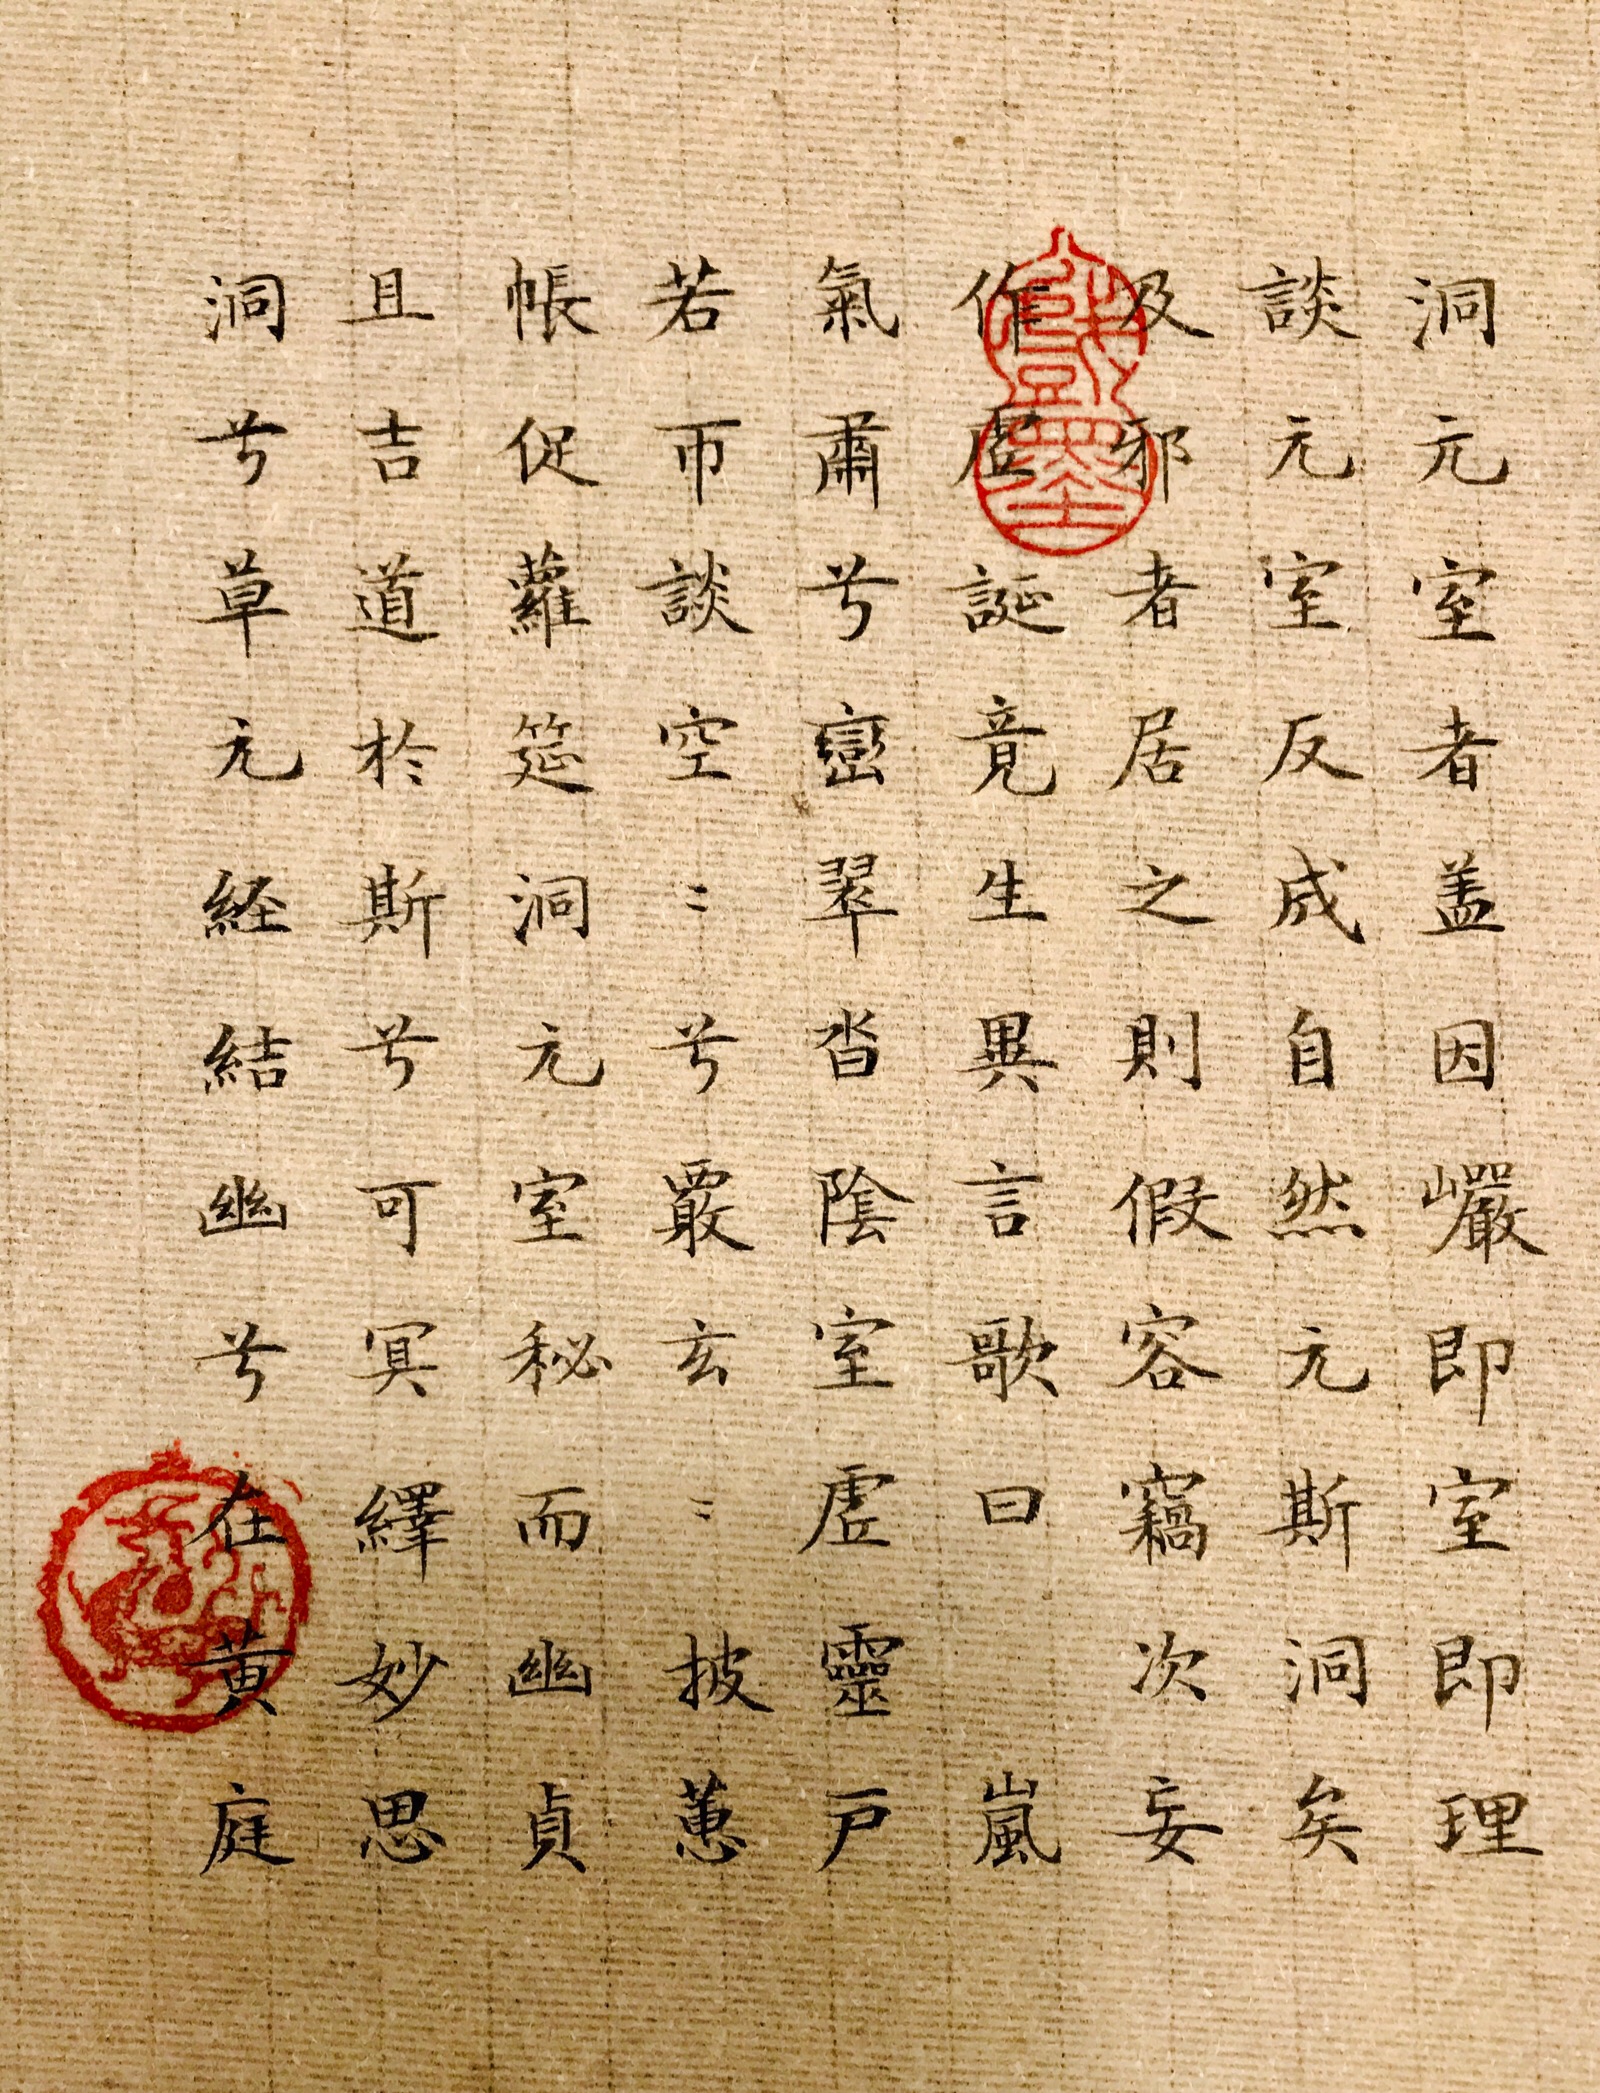 洞元室者盖因巗即室即理
談元室反成自然元斯洞矣
及邪者居之則假容竊次妄
作虛誕竟生異言歌曰 嵐
氣肅兮巒翠沓陰室虛靈戸
若帀談空〻兮覈玄〻披蕙
帳促蘿筵洞元室秘而幽貞
且吉道於斯兮可冥繹妙思
洞兮草元経結幽兮在黄庭